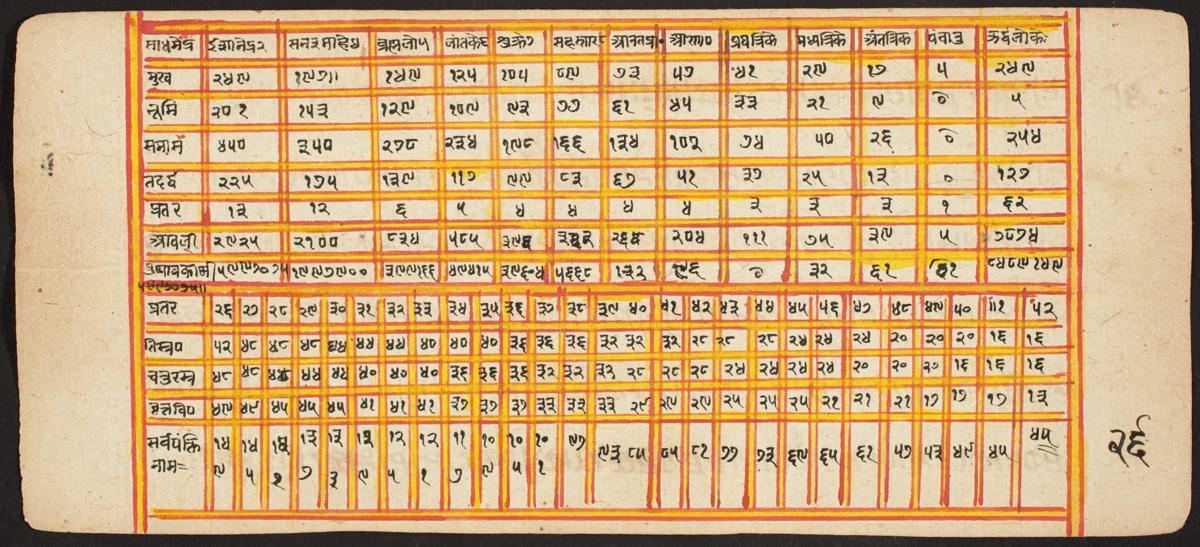 साधर्मेद्र ईशानेद्र२ सनत्रमाहेंद्र ब्रह्मलोए लांतकेद शुक्रे० सहस्सारे आनतप्रा० आरणा० प्रथमत्रिके मध्यत्रिके अंतत्रिक पंचानु ऊर्द्धलोकेः
मुख २४९ १९७॥ १४९ १२५ १०५ ८९ ७३ ५७ ४१ २९ १७ ५ २४९
भूमि २०१ १५३ १२९ १०९ ९३ ७७ ६१ ४५ ३३ २१ ९ ० ५
समासे ४५० ३५० २७८ २३४ १९८ १६६ १३४ १०२ ७४ ५० २६ ० २५४
तदर्द्ध २२५ १७५ १३९ ११७ ९९ ८३ ६७ ५१ ३७ २५ १३ ० १२७
प्रतर १३ १२ ६ ५ ४ ४ ४ ४ ३ ३ ३ १ ६२
आवली २९२५ २१०० ८३४ ५८५ ३९६ ३३२ २६४ २०४ १११ ७५ ३९ ५ ७८७४
पुष्पावकीर्ण ५९९७०७५ ११९९७९०० ३९९१६६ ४९४१५ ३९६०४ ५६६८ १३२ ९६ ० ३२ ६१ ६१ ८४८९१४९
५९९७०७५॥
प्रतर २६ २७ २८ २९ ३० ३१ ३२ ३३ ३४ ३५ ३६ ३७ ३८ ३९ ४० ४१ ४२ ४३ ४४ ४५ ४६ ४७ ४८ ४९ ५० ५१ ५२
तिस्त्रप ५२ ४८ ४८ ४८ ४४ ४४ ४४ ४० ४० ४० ३६ ३६ ३६ ३२ ३२ ३२ २८ २८ २८ २४ २४ २४ २० २० २० १६ १६
चतुरस्त्र ४८ ४८ ४४ ४४ ४४ ४० ४० ४० ३६ ३६ ३६ ३२ ३२ ३२ २८ २८ २८ २४ २४ २४ २४ २० २० २० १६ १६ १६
४९ ४९ ४५ ४५ ४५ ४१ ४१ ४१ ३७ ३७ ३७ ३३ ३३ ३३ २९ २९ २९ २५ २५ २५ २१ २१ २१ १७ १७ १७ १३
सर्वपंक्ति १४ १४ १४ १३ १३ १३ १२ १२ ११ १० १० १० ९७ ९३ ८९ ८५ ८१ ७७ ७३ ६९ ६५ ६१ ५७ ५३ ४९ ४५ ४५
नाम= ९ ५ १ ७ ३ ९ ५ १ ७ ९ ५ १
२६